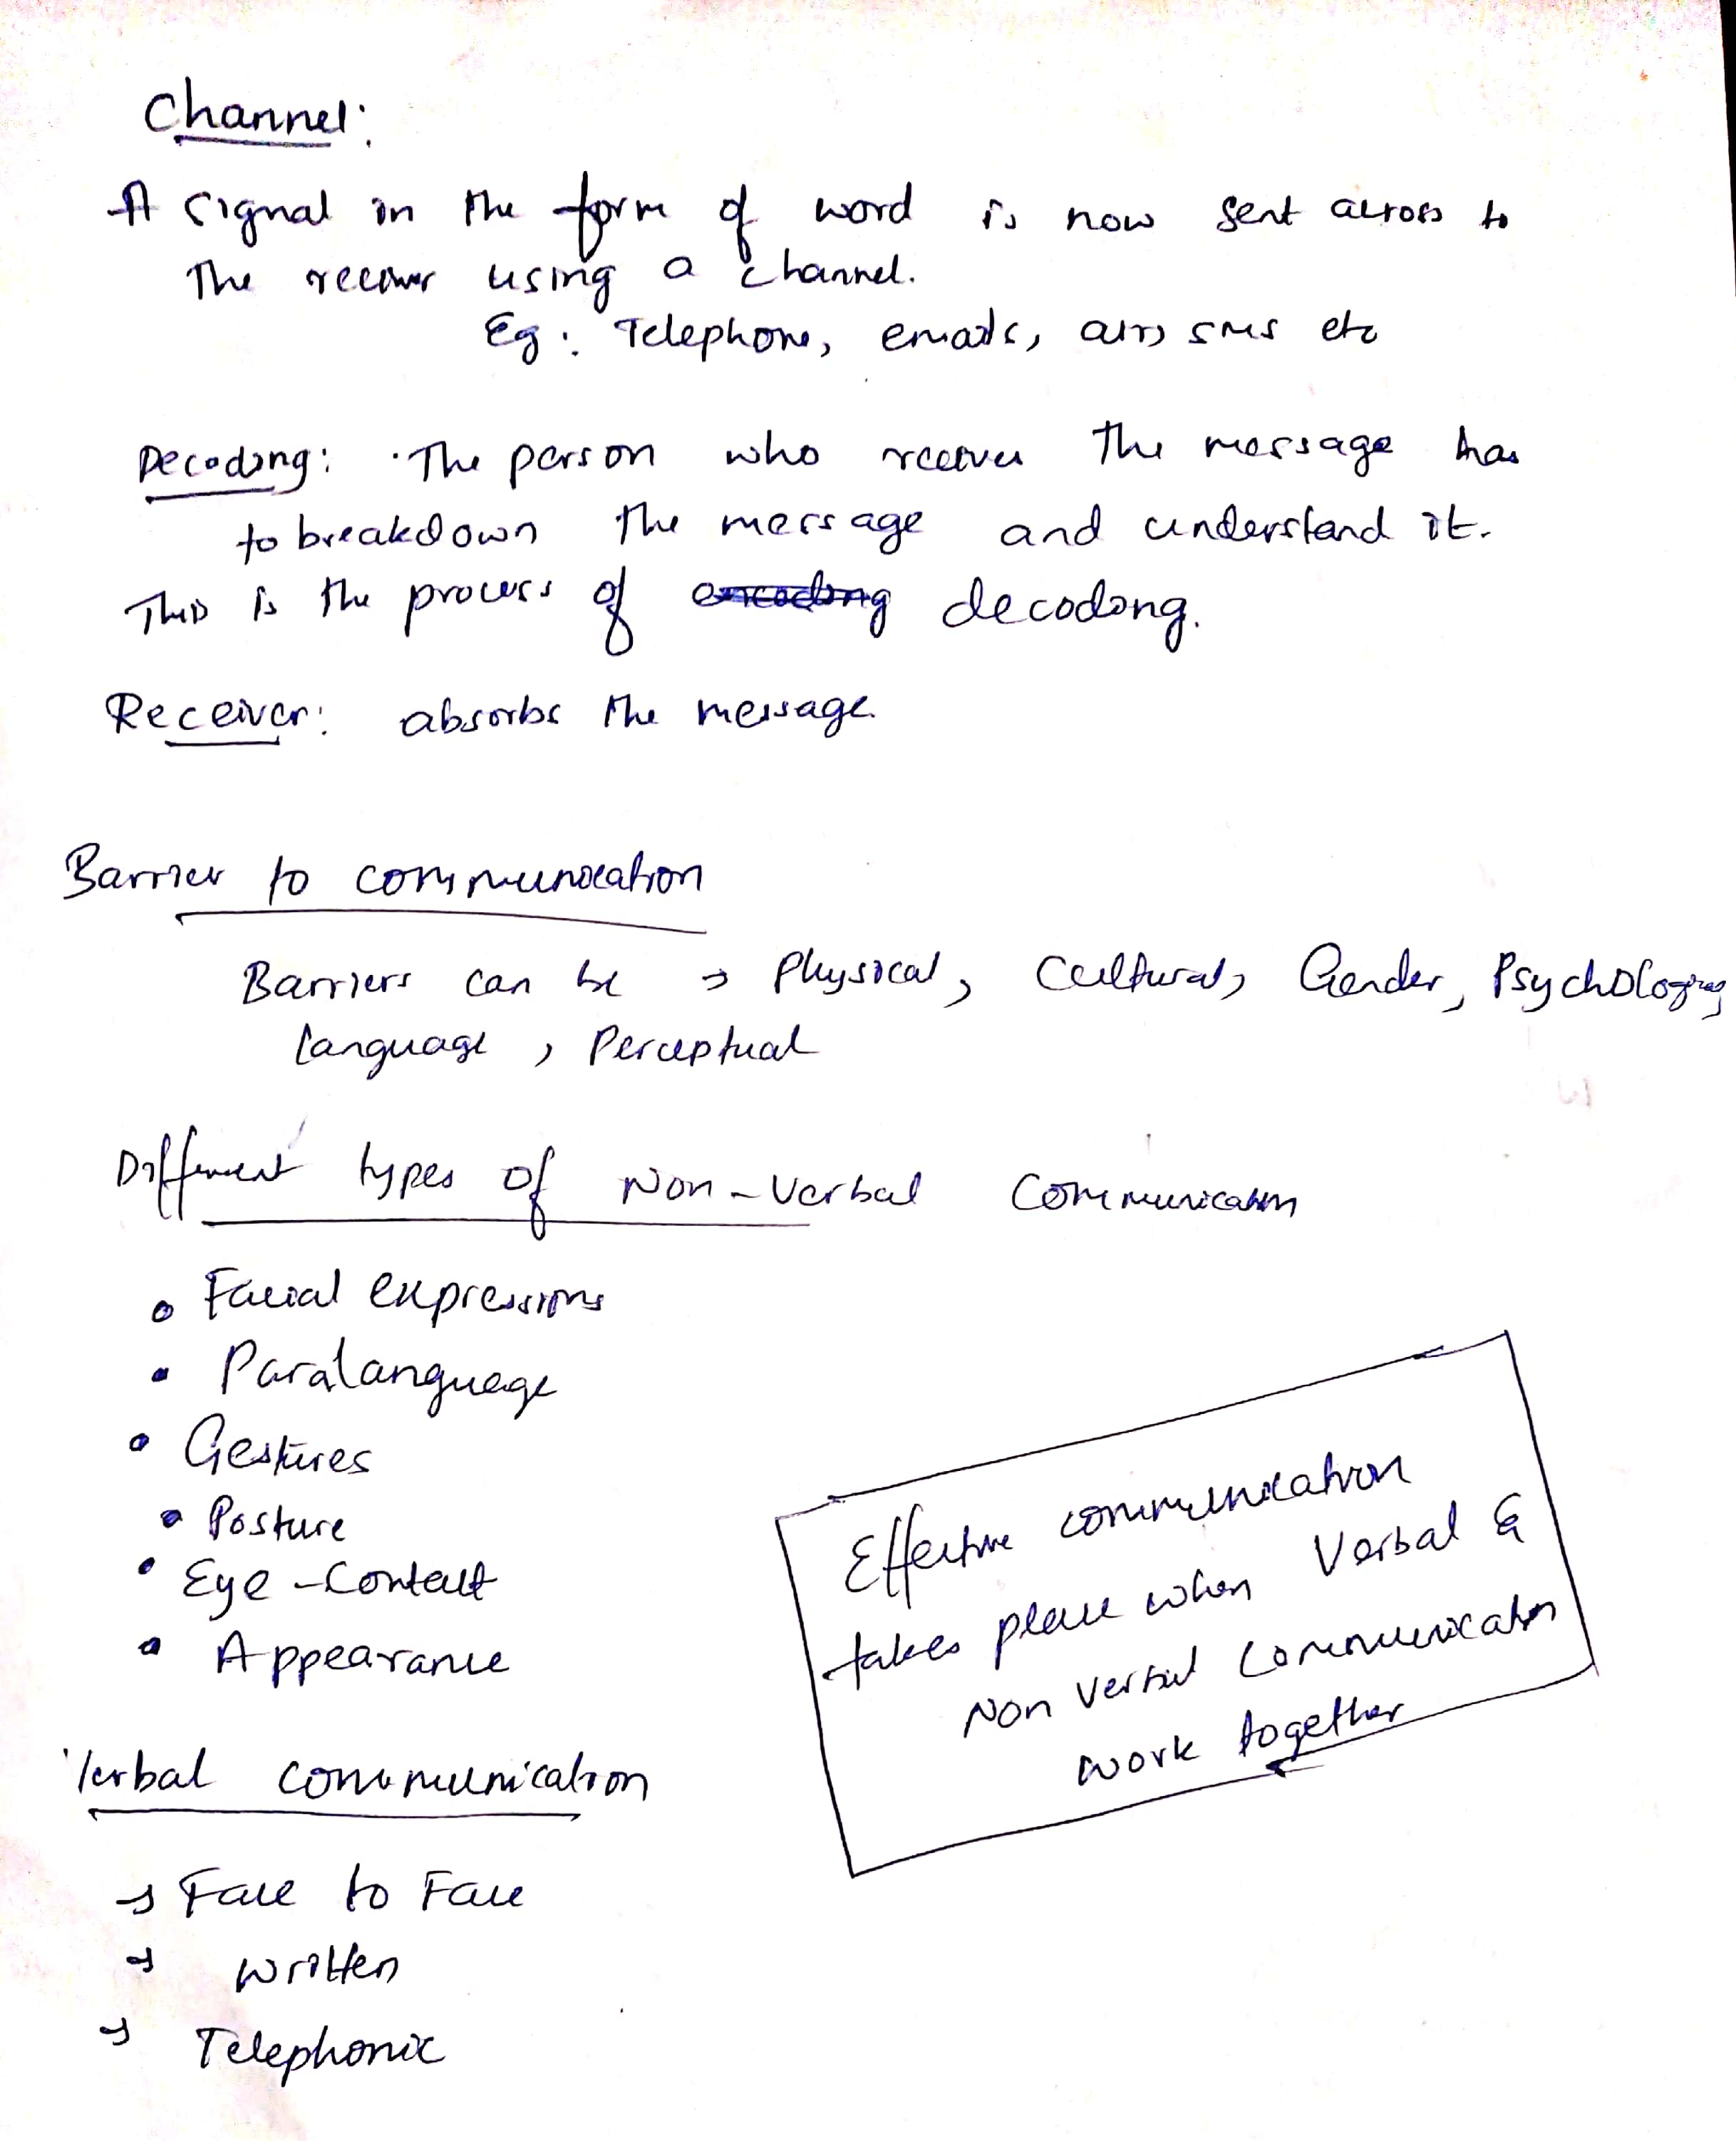 Channel:
A signal in the form of word is now sent across to
The reciever using a channel.
Eg: Telephone, emails, air, sms etc
Decoding: The person who receives the message has
to breakdown the message and understand it.
This is the process of encoding decoding.
Receiver: absorbs the message.
Barrier to communication
Barriers can be → Physical, Cultural, Gender, Psychological,
language, Perceptual
Different types of Non-Verbal Communication
• Facial expressions
• Paralanguage
• Gestures
• Posture
• Eye-Contact
• Appearance
Effective communication
takes place when Verbal &
Non Verbal Communication
work together
Verbal communication
→ Face to Face
→ Written
→ Telephonic